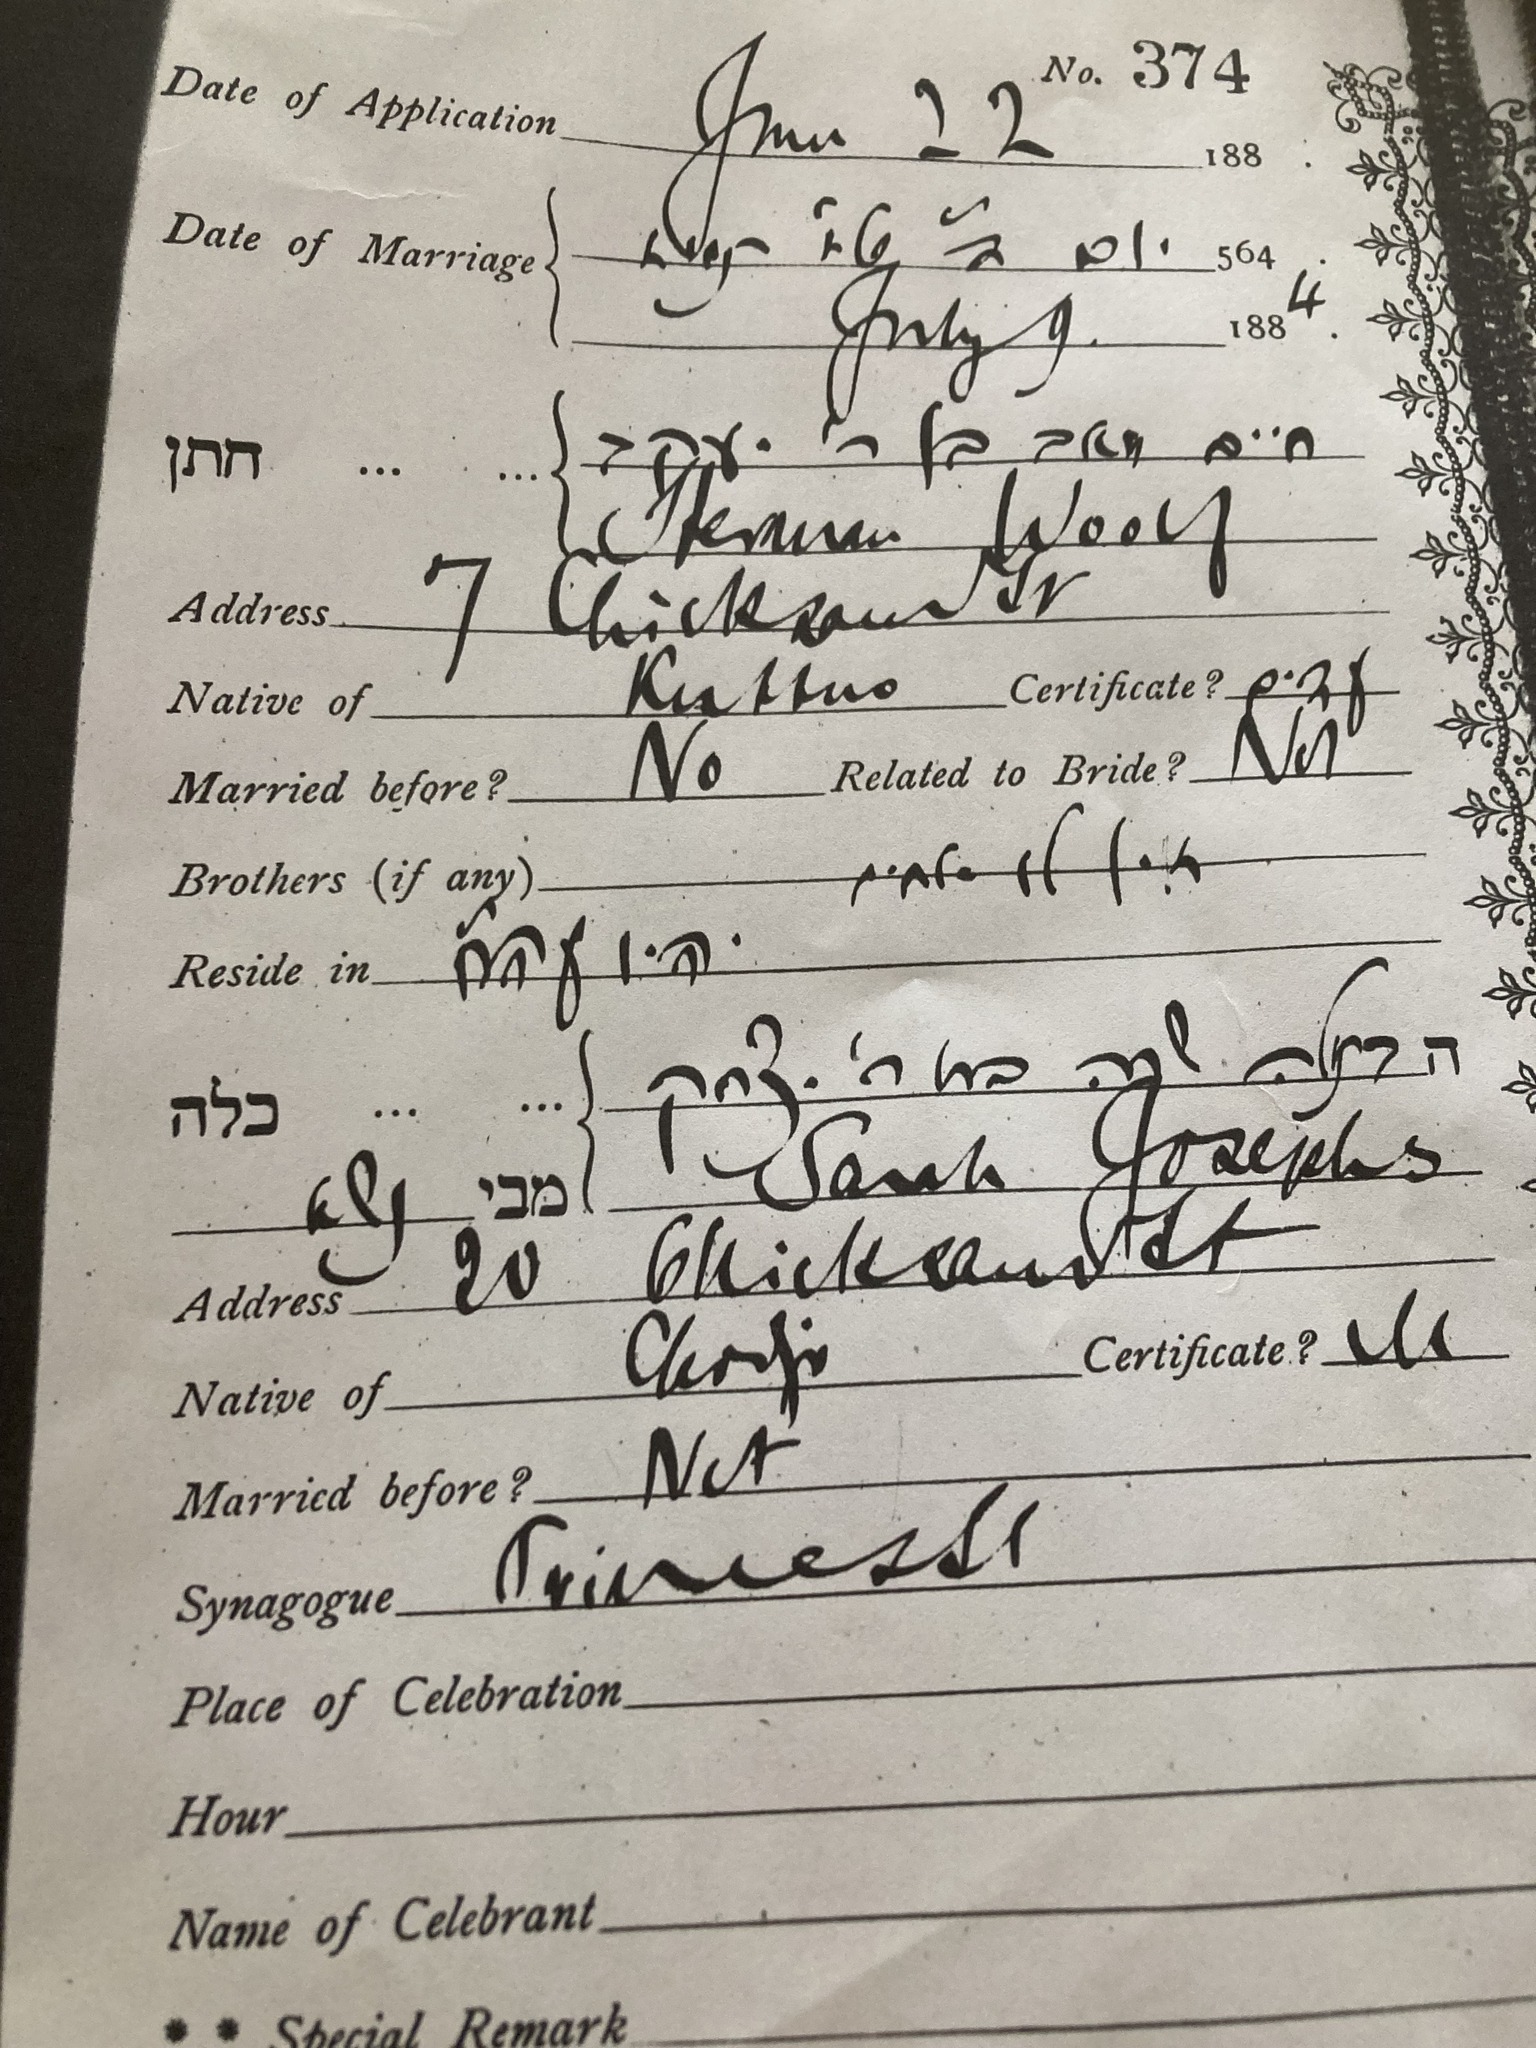 No. 374
Date of Application June 22 188 .
Date of Marriage יום ב' 564 .
July 9. 1884.
חתן ... ... חיים זאב בן ר' יעקב
Herman Woolf
Address 7 Chicksand Str
Native of Kuttno Certificate? עדים
Married before? No Related to Bride? Not
Brothers (if any) אין לו אחים
Reside in יהיו
כלה ... ... שרה בת ר' יצחק
Sarah Josephs
מבי
Address 20 Chicksand St
Native of Certificate?
Married before? Not
Synagogue Princes St
Place of Celebration
Hour
Name of Celebrant
* * Special Remark